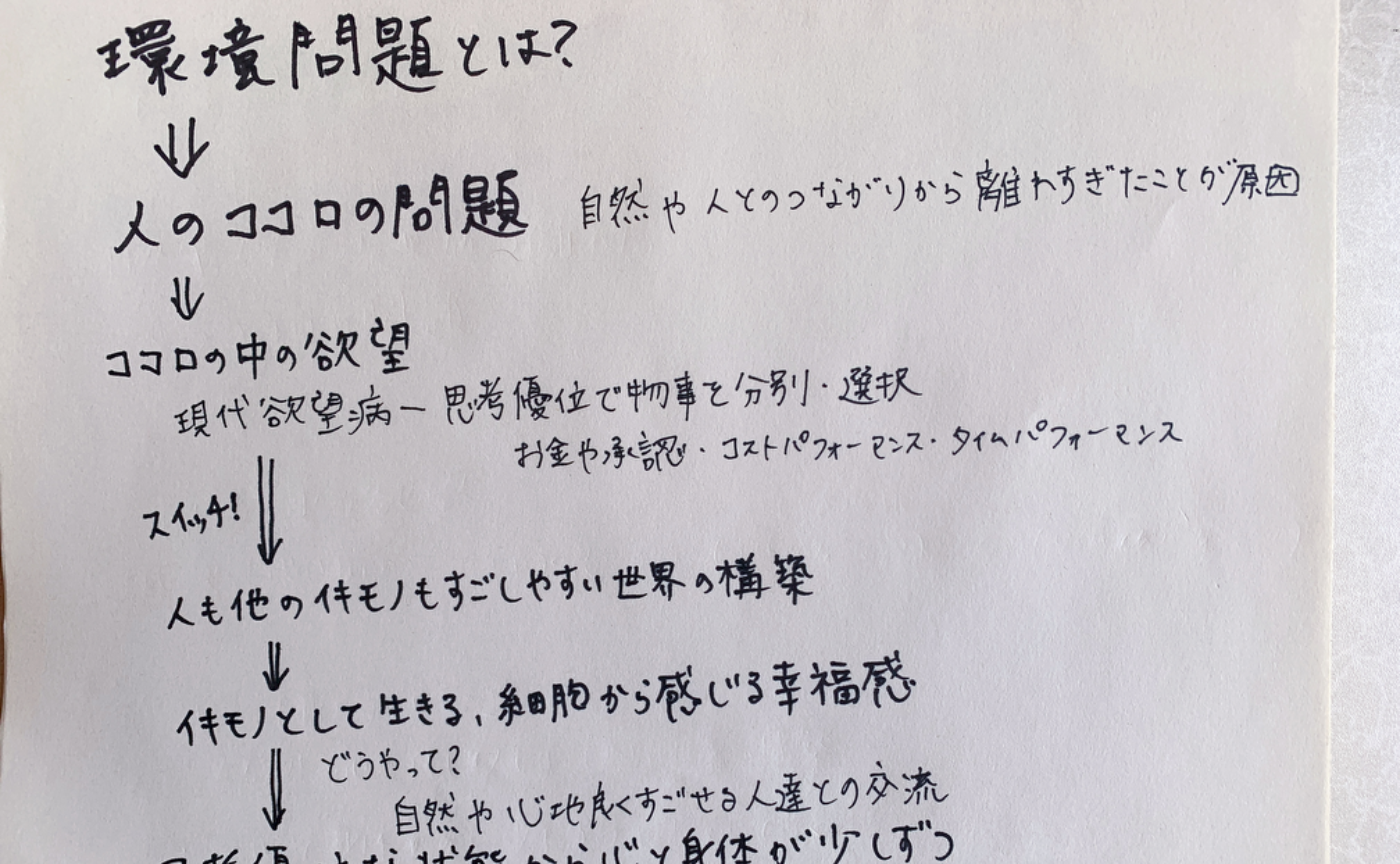 環境問題とは?
⇓
人のココロの問題 自然や人とのつながりから離れすぎたことが原因
⇓
ココロの中の欲望
現代欲望病ー思考優位で物事を分別・選択
お金や承認・コストパフォーマンス・タイムパフォーマンス
スイッチ! ⇓
人も他のイキモノもすごしやすい世界の構築
⇓
イキモノとして生きる、細胞から感じる幸福感
⇓ どうやって?
自然や心地良くすごせる人達との交流
状態から心と身体が少しずつ